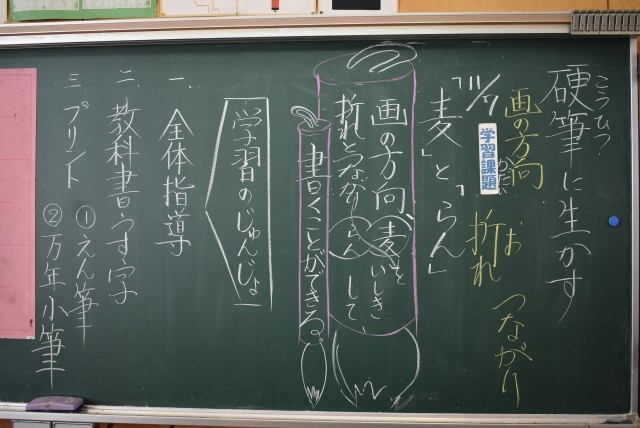 硬筆に生かす
こうひつ
画の方向
折れ
お
つながり
11/7
学習課題
かだい
「麦」と「らん」
画の方向、麦を
いしきして、
折れとつながりらん
書くことができる。
学習のじゅんじょ
一、全体指導
二、教科書うす字
三、プリント
①えん筆
②万年小筆